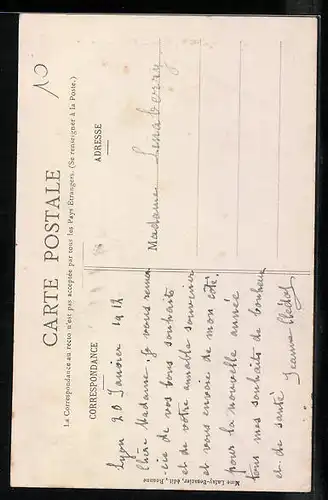 10
CARTE POSTALE
La Correspondance au recto n'est pas acceptée par tous les Pays Étrangers. (Se renseigner à la Poste.)
CORRESPONDANCE
Lyon 20 Janvier 1912
Chère Madame. Je vous remer
-cie de vos bons souhaits
et de votre aimable souvenir
et vous envoie de mon côté
pour la nouvelle année
tous mes souhaits de bonheur
et de santé Jeanne
ADRESSE
Madame
Mme Lafay-Donzier, édit., Roanne